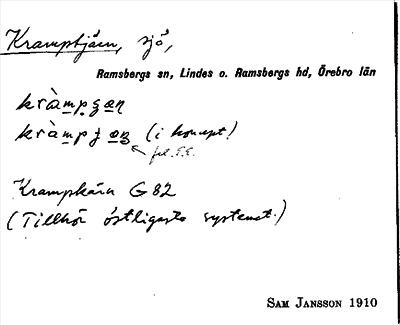 Kramptjärn, sjö,
Ramsbergs sn, Lindes o. Ramsbergs hd, Örebro län
kràmpʒæn
kràmpʒæn (i koncept!)
Krampkärn G 82
(Tillhör östligaste systemet.)
SAM JANSSON 1910